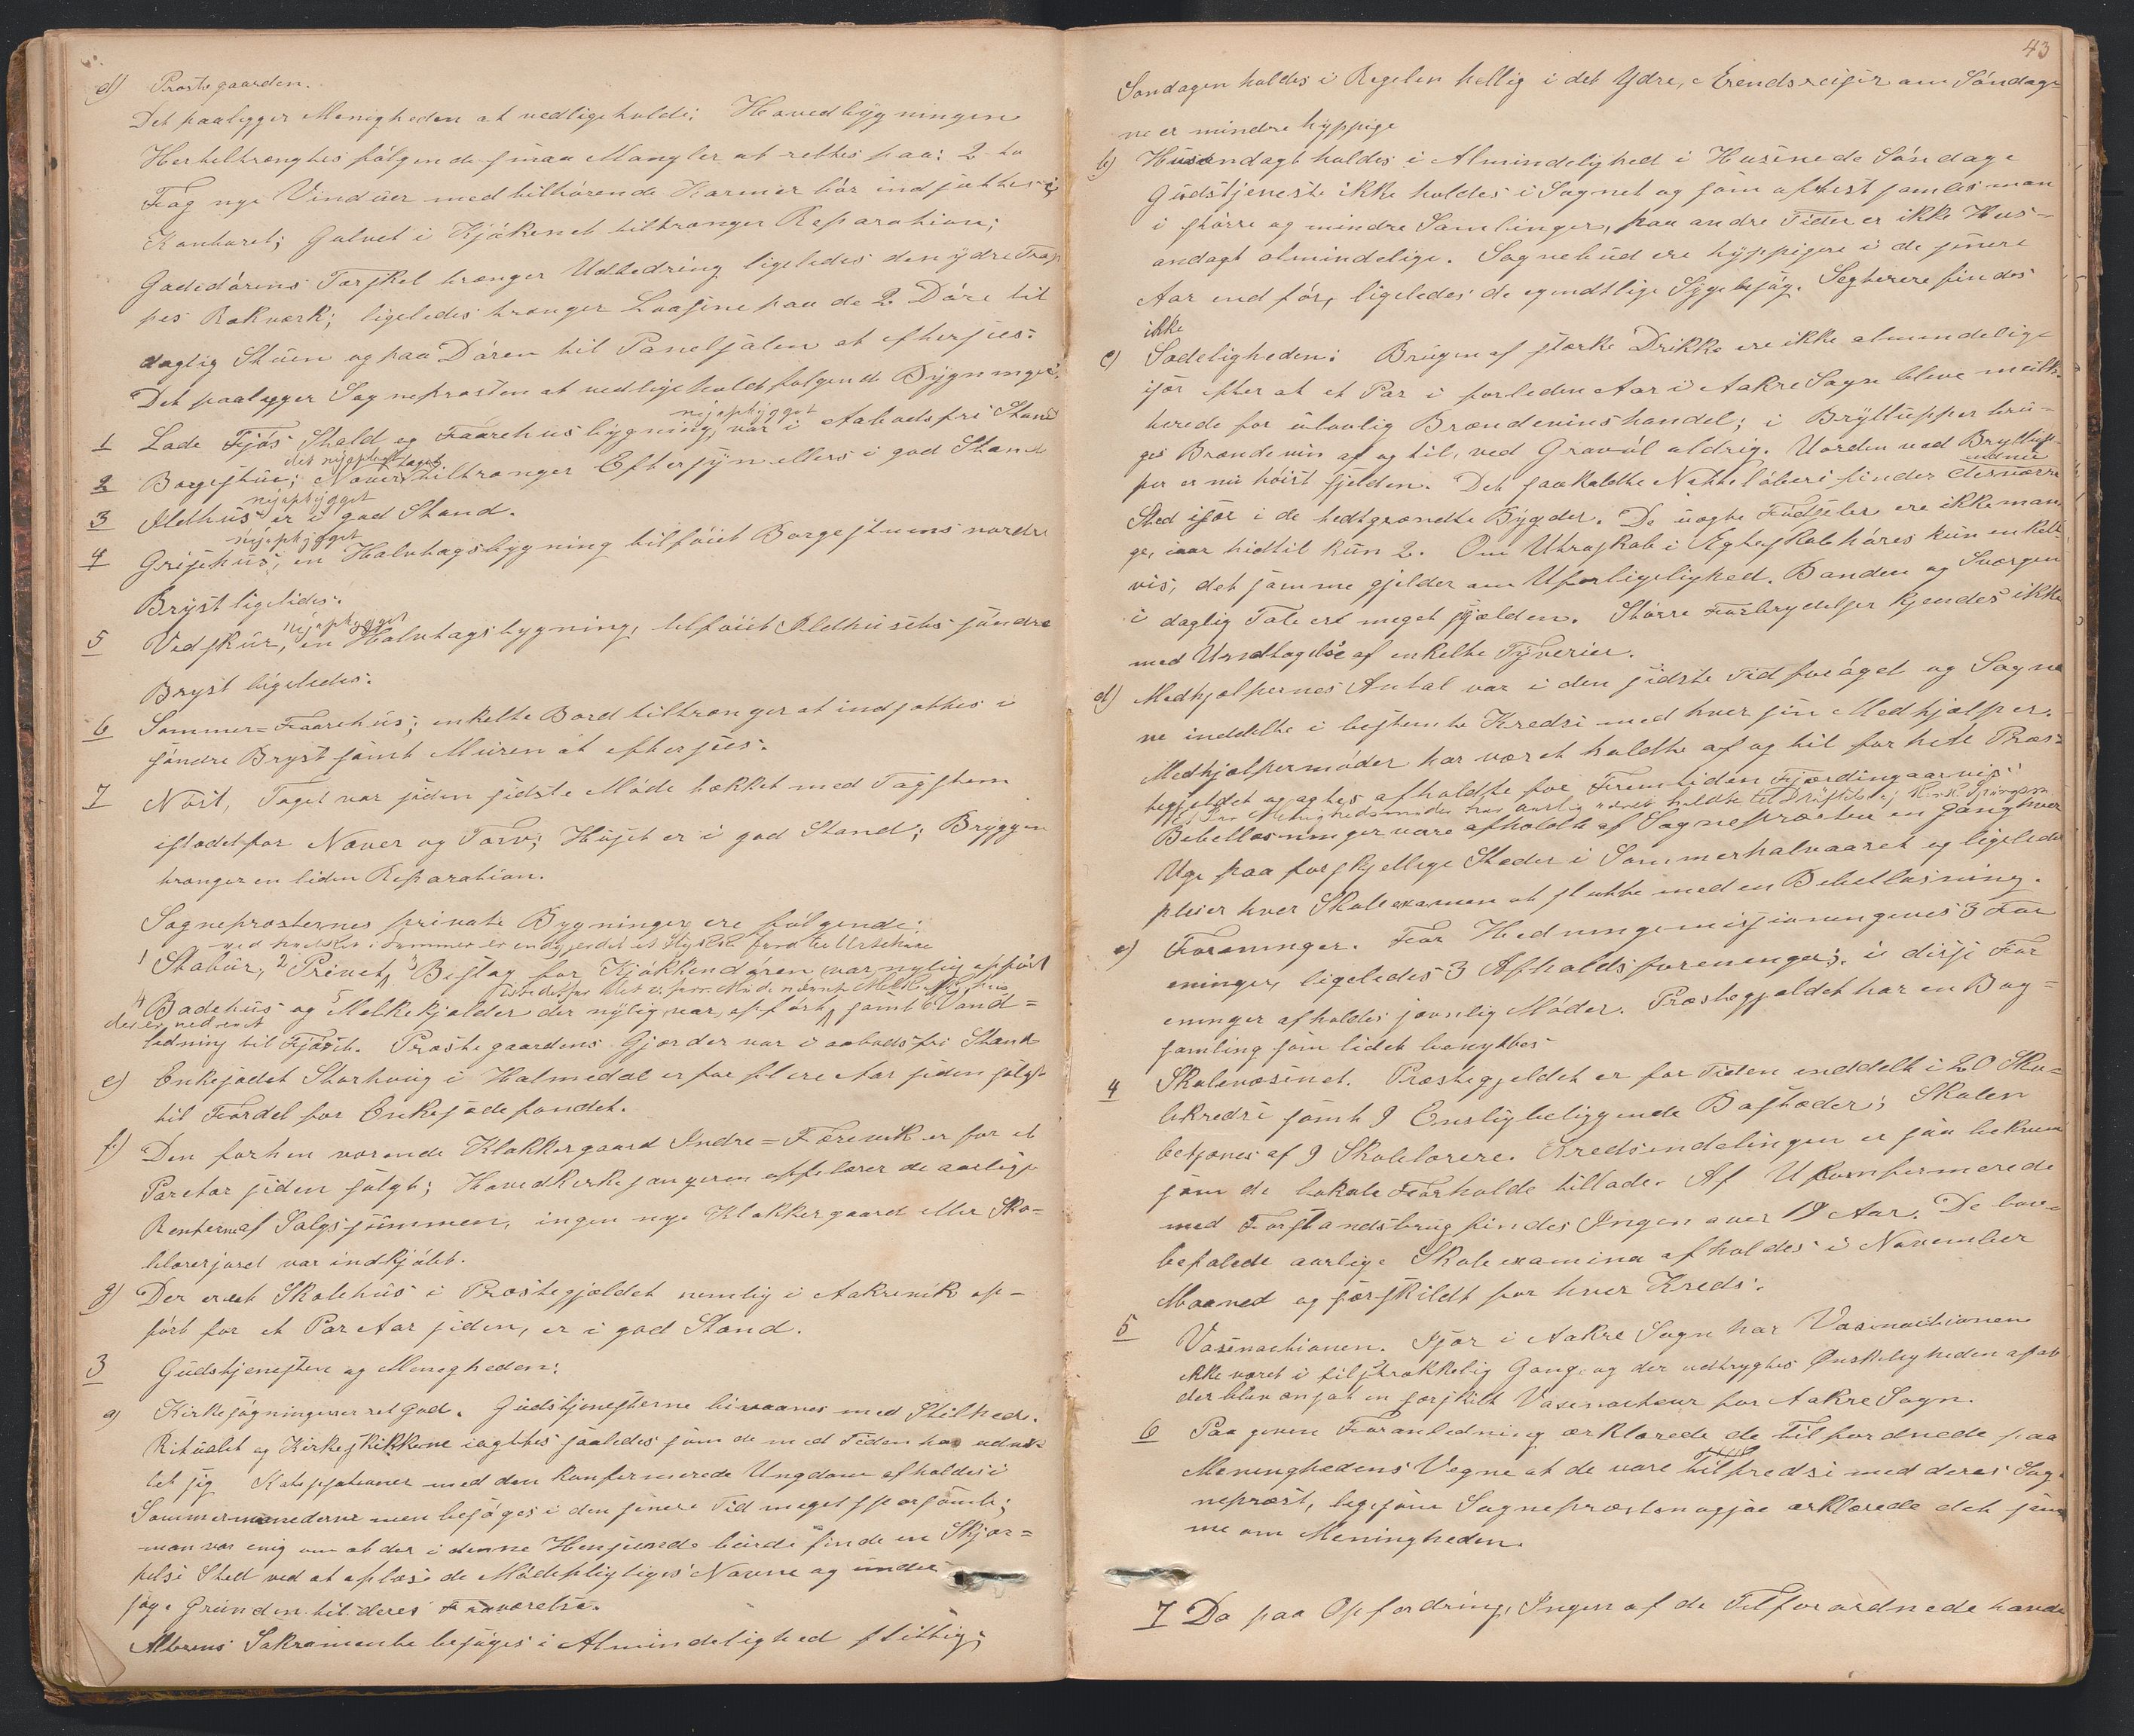 d) Prostegaarden.
Det paaligger Menigheden at vedligeholde: Hovedbygningen
Hertiltrænghes følgende smaa Mangler at rettes paa: 2 to
Fag nye Vinduer med tilhörende Karmer bör indsættes i
Kontoret; Gulvet i Kjökenet tiltrænger Reparation;
Gadedörens Tærskel trænger Udbedring ligeledes den ydre Trap
pes Rækværk; ligeledes trænger Laasene paa de 2 Döre til
daglig Stuen og paa Dören til Panelsalen at efterses.
Det paaligger Sognepræsten at vedligeholde følgende Bygninger.
nyopbygget
1 Lade Fjös Stald og Faarehusbygning, var i Aabodsfri Stand
2 Borgestue; Næver tiltrænger Eftersyn ellers i god Stand
nyopbygget
3 Ildhus er i god Stand.
nyopbygget
4 Grisehus, en Halvtagsbygning tilföiet Borgestuens nordre
Bryst ligeledes.
nyopbygget
5 Vedskur, en Halvtagsbygning, tilföiet Ildhusets söndre
Bryst ligeledes.
6 Sommer=Faarehus; enkelte Bord tiltrænger at indsættes i
söndre Bryst samt Muren at efterses.
7 Nöst, Taget var siden sidste Möde tækket med Tagsten
istedetfor Næver og Torv; Huset er i god Stand; Bryggen
trænger en liden Reparation.
Sognepræsternes private Bygninger ere følgende:
1 Stabur, 2 Privet, 3 Bislag for Kjökkendören var nylig opfört
4 Badehus og 5 Melkekjelder der nylig var opfört samt 6 Vand=
ledning til Fjöset. Præstegaardens Gjærder var i aabodsfri Stand
e) Enkesædet Storhaug i Halmedal er for flere Aar siden solgt
til Fordel for Enkesædefondet.
f) Den forhen værende Klokkergaard Indre=Færevik er for et
Par Aar siden solgt; Hovedkirkesangeren oppebærer de aarlige
Renter af Salgssummen, ingen nye Klokkergaard eller Sko=
lelærerjord var indkjöbt.
g) Der er et Skolehus i Præstegjældet nemlig i Aakrevik op=
fört for et Par Aar siden, er i god Stand.
3 Gudstjenesten og Menigheden:
a) Kirkesögningen er ret god. Gudstjenesterne bivaanes med Stilhed.
Ritualet og Kirkeskikkene iagttes saaledes som de med Tiden har udvik
let sig Katesisationer med den konfirmerede Ungdom afholdes i
Sommermaanederne men besöges i den senere Tid meget sparsomt;
man var enig om at der i denne Henseende burde finde en Skjær=
pelse Sted ved at oplæse de Mödepligtiges Navne og under
söge Grunden til deres Fraværelse.
Alterens Sakramente besöges i Almindelighed flittig;
43
Söndagen holdes i Regelen hellig i det Ydre, Ærendsreiser om Söndage
ne er mindre hyppige
b) Husandagt holdes i Almindelighed i Husene de Söndage
Gudstjeneste ikke holdes i Sognet og som oftest samles man
i större og mindre Samlinger, paa andre Tider er ikke Hus=
andagt almindelige. Sognebud ere hyppigere i de senere
Aar end för, ligeledes de egentlige Sygebesög. Segterere findes
ikke
c) Sædeligheden: Brugen af stærke Drikke ere ikke almindelige
især efter at et Par i forleden Aar i Aakre Sogn bleve mulk=
terede for ulovlig Brændevinshandel; i Bryllupper bru=
ges Brændevin af og til, ved Gravöl aldrig. Uorden ved Bryllup
per er nu höist sjelden. Det saakaldte Natteløberi finder desværre
endnu
Sted især i de tedtgrændte Bygder. De uægte Födsler ere ikke man
ge, iaar hidtil kun 2. Om Utroskab i Ægteskab höres kun enkelt=
vis, det samme gjelder om Uforligelighed. Banden og Sværgen
i daglig Tale er meget sjælden. Större Forbrydelser kjendes ikke
med Undtagelse af enkelte Tyverier.
d) Medhjælpernes Antal var i den sidste Tid foröget og Sogne
ne inddelte i bestemte Kredse med hver sin Medhjælper.
Medhjælpermöder har været holdte af og til for hele Præs=
tegjeldet og agtes afholdte for Fremtiden Fjærdingaarvis
Bibellæsninger vare afholdt af Sognepræsten en Gang hver
Uge paa forskjellige Steder i Sommerhalvaaret og ligeledes
pleier hver Skoleexamen at slutte med en Bibellæsning.
e) Foreninger. For Hedningemissionen gives 3 For
eninger, ligeledes 3 Afholdsforeninger; i disse For
eninger afholdes jævnlig Möder. Præstegjældet har en Bog=
samling som lidet benyttes
4 Skolevæsenet. Præstegjeldet er for Tiden inddelt i 20 Sko=
lekredse samt 9 Ensligbeliggende Bosteder; Skolen
betjenes af 9 Skolelærere. Kredsindelingen er saa bekvem
som de lokale Forholde tillade. Af Ukonfirmerede
med Forstandsbrug findes Ingen over 19 Aar. De lov=
befalede aarlige Skoleexamina afholdes i November
Maaned og særskildt for hver Kreds.
5 Vaxinationen. Især i Aakre Sogn har Vaxinationen
ikke været i tilstrækkelig Gang og der udtrygtes Önskeligheden af at
der blev ansat en særskilt Vaxinateur for Aakre Sogn.
6 Paa given Foranledning erklærede de tilforordnede paa
Meninghedens Vegne at de vare tilfredse med deres Sog=
nepræst, ligesom Sognepræsten ogsaa erklærede det sam
me om Meningheden.
7 Da paa Opfordring, Ingen af de Tilforordnede havde